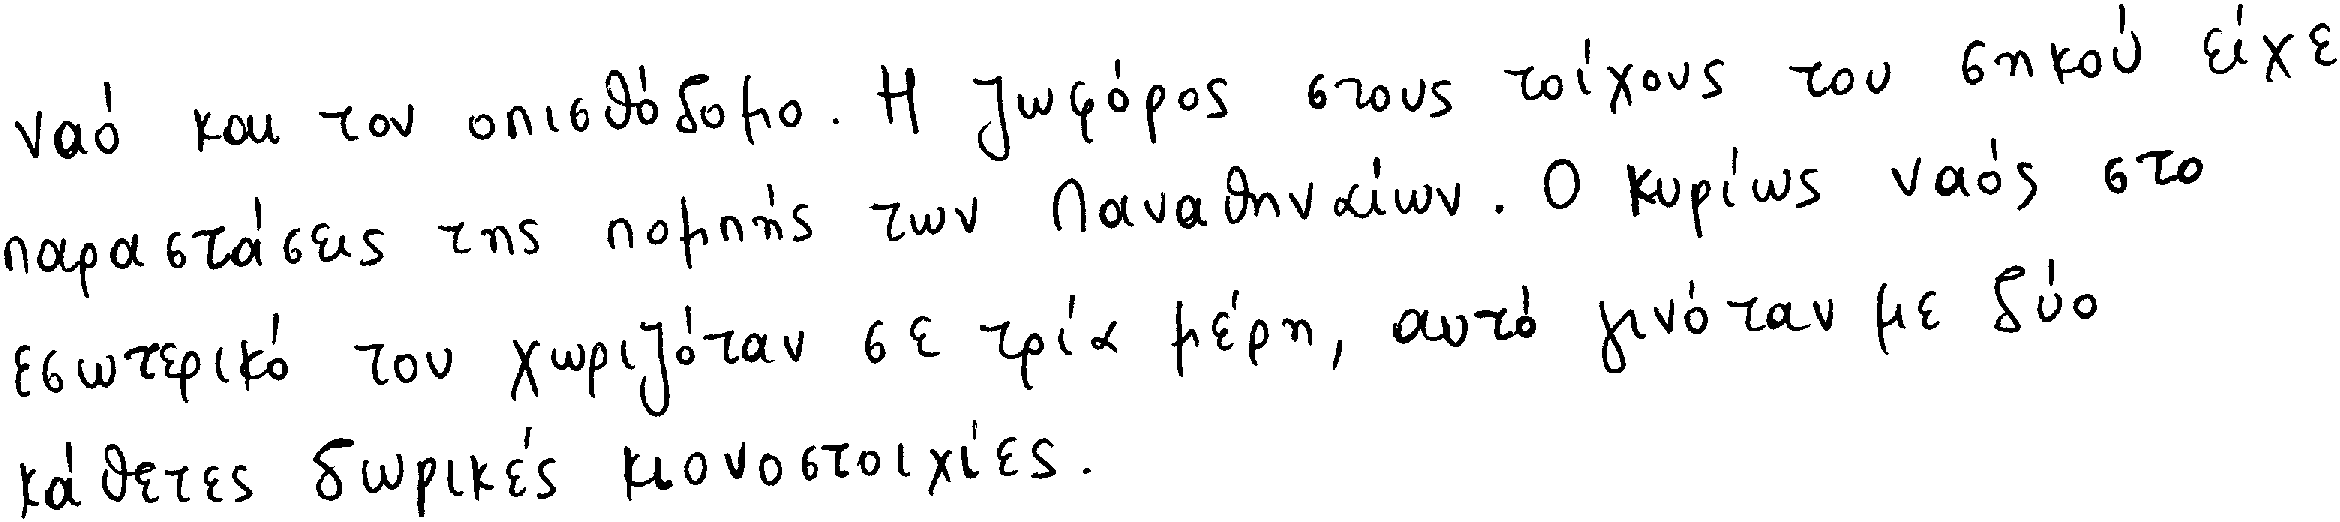 ναό και τον οπισθόδομο. Η ζωφόρος στους τοίχους του σηκού είχε
παραστάσεις της πομπής των Παναθηναίων. Ο κυρίως ναός στο
εσωτερικό του χωριζόταν σε τρία μέρη, αυτό γινόταν με δύο
κάθετες δωρικές κιονοστοιχίες.